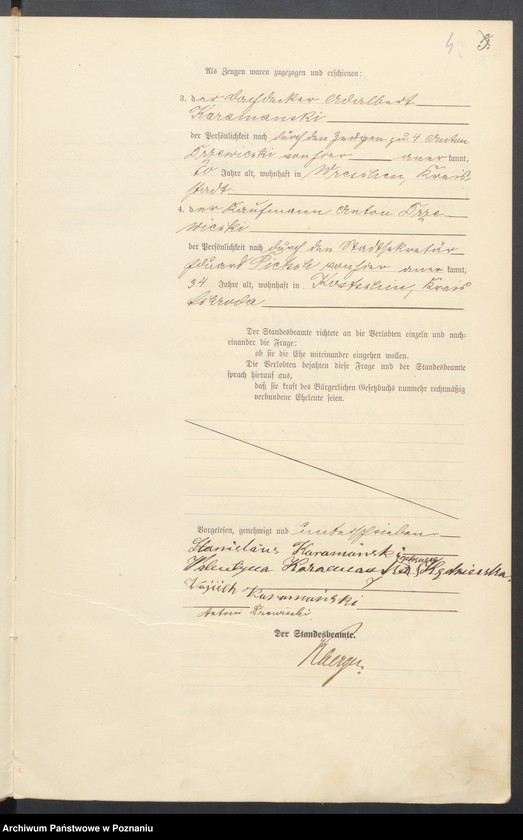 4 5.
Als Zeugen waren zugezogen und erschienen:
3. der Dachdecker Adalbert
Karamanski
der Persönlichkeit nach durch den Zeugen zu 4 Anton
von hier anerkannt,
60 Jahre alt, wohnhaft in Wreschen, Kreis
stadt
4. der Kaufmann Anton Drze-
wiecki
der Persönlichkeit nach durch den Stadtsekretär
Eduard von hier anerkannt,
34 Jahre alt, wohnhaft in Kostschin, Kreis
Schroda
Der Standesbeamte richtete an die Verlobten einzeln und nach-
einander die Frage:
ob sie die Ehe miteinander eingehen wollen.
Die Verlobten bejahten diese Frage und der Standesbeamte
sprach hierauf aus,
daß sie kraft des Bürgerlichen Gesetzbuchs nunmehr rechtmäßig
verbundene Eheleute seien.
Vorgelesen, genehmigt und unterschrieben
Stanislaus Karamański
Walentyna
Wojciech Karamański
Antoni Drzewiecki
Der Standesbeamte.
Archiwum Państwowe w Poznaniu